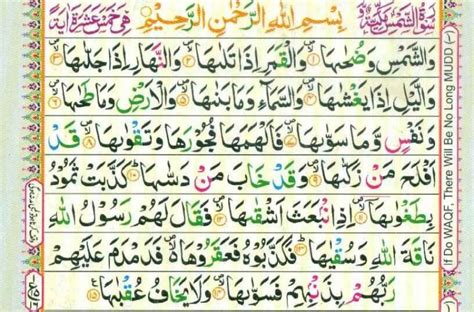 سُوْرَةُ الشَّمْسِ مَكِّيَّةٌ بِسْمِ اللّٰهِ الرَّحْمٰنِ الرَّحِيْمِ هِيَ خَمْسَ عَشْرَةَ اٰيَةً
وَالشَّمْسِ وَضُحٰىهَا ۝۱ وَالْقَمَرِ اِذَا تَلٰىهَا ۝۲ وَالنَّهَارِ اِذَا جَلّٰىهَا ۝۳
وَالَّيْلِ اِذَا يَغْشٰىهَا ۝۴ وَالسَّمَآءِ وَمَا بَنٰىهَا ۝۵ وَالْاَرْضِ وَمَا طَحٰىهَا ۝۶
وَنَفْسٍ وَّمَا سَوّٰىهَا ۝۷ فَاَلْهَمَهَا فُجُوْرَهَا وَتَقْوٰىهَا ۝۸ قَدْ
اَفْلَحَ مَنْ زَكّٰىهَا ۝۹ وَقَدْ خَابَ مَنْ دَسّٰىهَا ۝۱۰ كَذَّبَتْ ثَمُوْدُ
بِطَغْوٰىهَا ۝۱۱ اِذِ انْۢبَعَثَ اَشْقٰىهَا ۝۱۲ فَقَالَ لَهُمْ رَسُوْلُ اللّٰهِ
نَاقَةَ اللّٰهِ وَسُقْيٰهَا ۝۱۳ فَكَذَّبُوْهُ فَعَقَرُوْهَا فَدَمْدَمَ عَلَيْهِمْ
رَبُّهُمْ بِذَنْۢبِهِمْ فَسَوّٰىهَا ۝۱۴ وَلَا يَخَافُ عُقْبٰهَا ۝۱۵
If Do WAQF, There Will Be No Long MUDD (~)